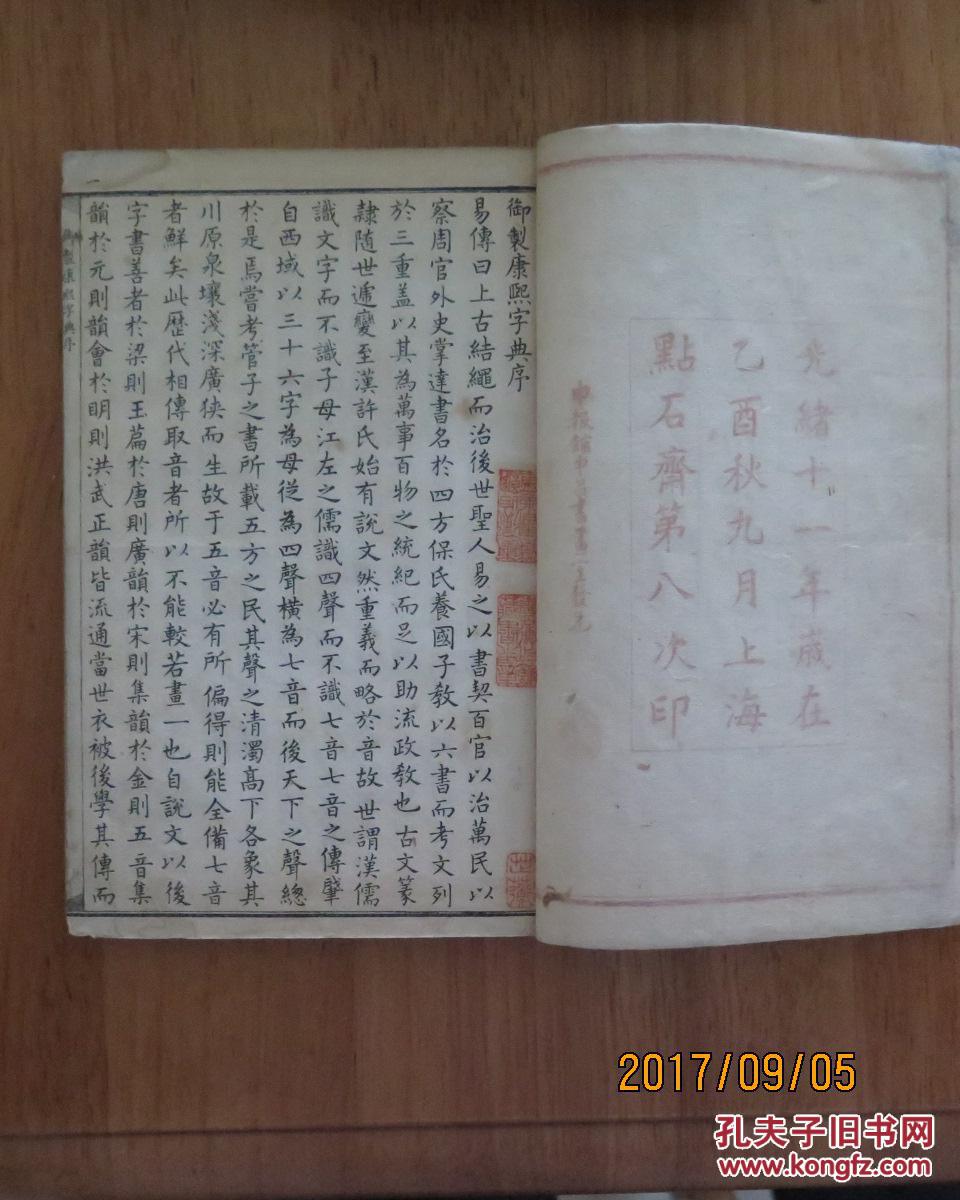 光緒十一年歲在
乙酉秋九月上海
點石齋第八次印
申報館申昌書畫室發兌
御製康熙字典序
易傳曰上古結繩而治後世聖人易之以書契百官以治萬民以
察周官外史掌達書名於四方保氏養國子教以六書而考文列
於三重蓋以其為萬事百物之統紀而足以助流政教也古文篆
隸隨世遞變至漢許氏始有說文然重義而略於音故世謂漢儒
識文字而不識子母江左之儒識四聲而不識七音七音之傳肇
自西域以三十六字為母從為四聲橫為七音而後天下之聲總
於是焉嘗考管子之書所載五方之民其聲之清濁高下各象其
川原泉壤淺深廣狹而生故于五音必有所偏得則能全備七音
者鮮矣此歷代相傳取音者所以不能較若畫一也自說文以後
字書善者於梁則玉篇於唐則廣韻於宋則集韻於金則五音集
韻於元則韻會於明則洪武正韻皆流通當世衣被後學其傳而
御製康熙字典序
一
2017/09/05
孔夫子旧书网
www.kongfz.com